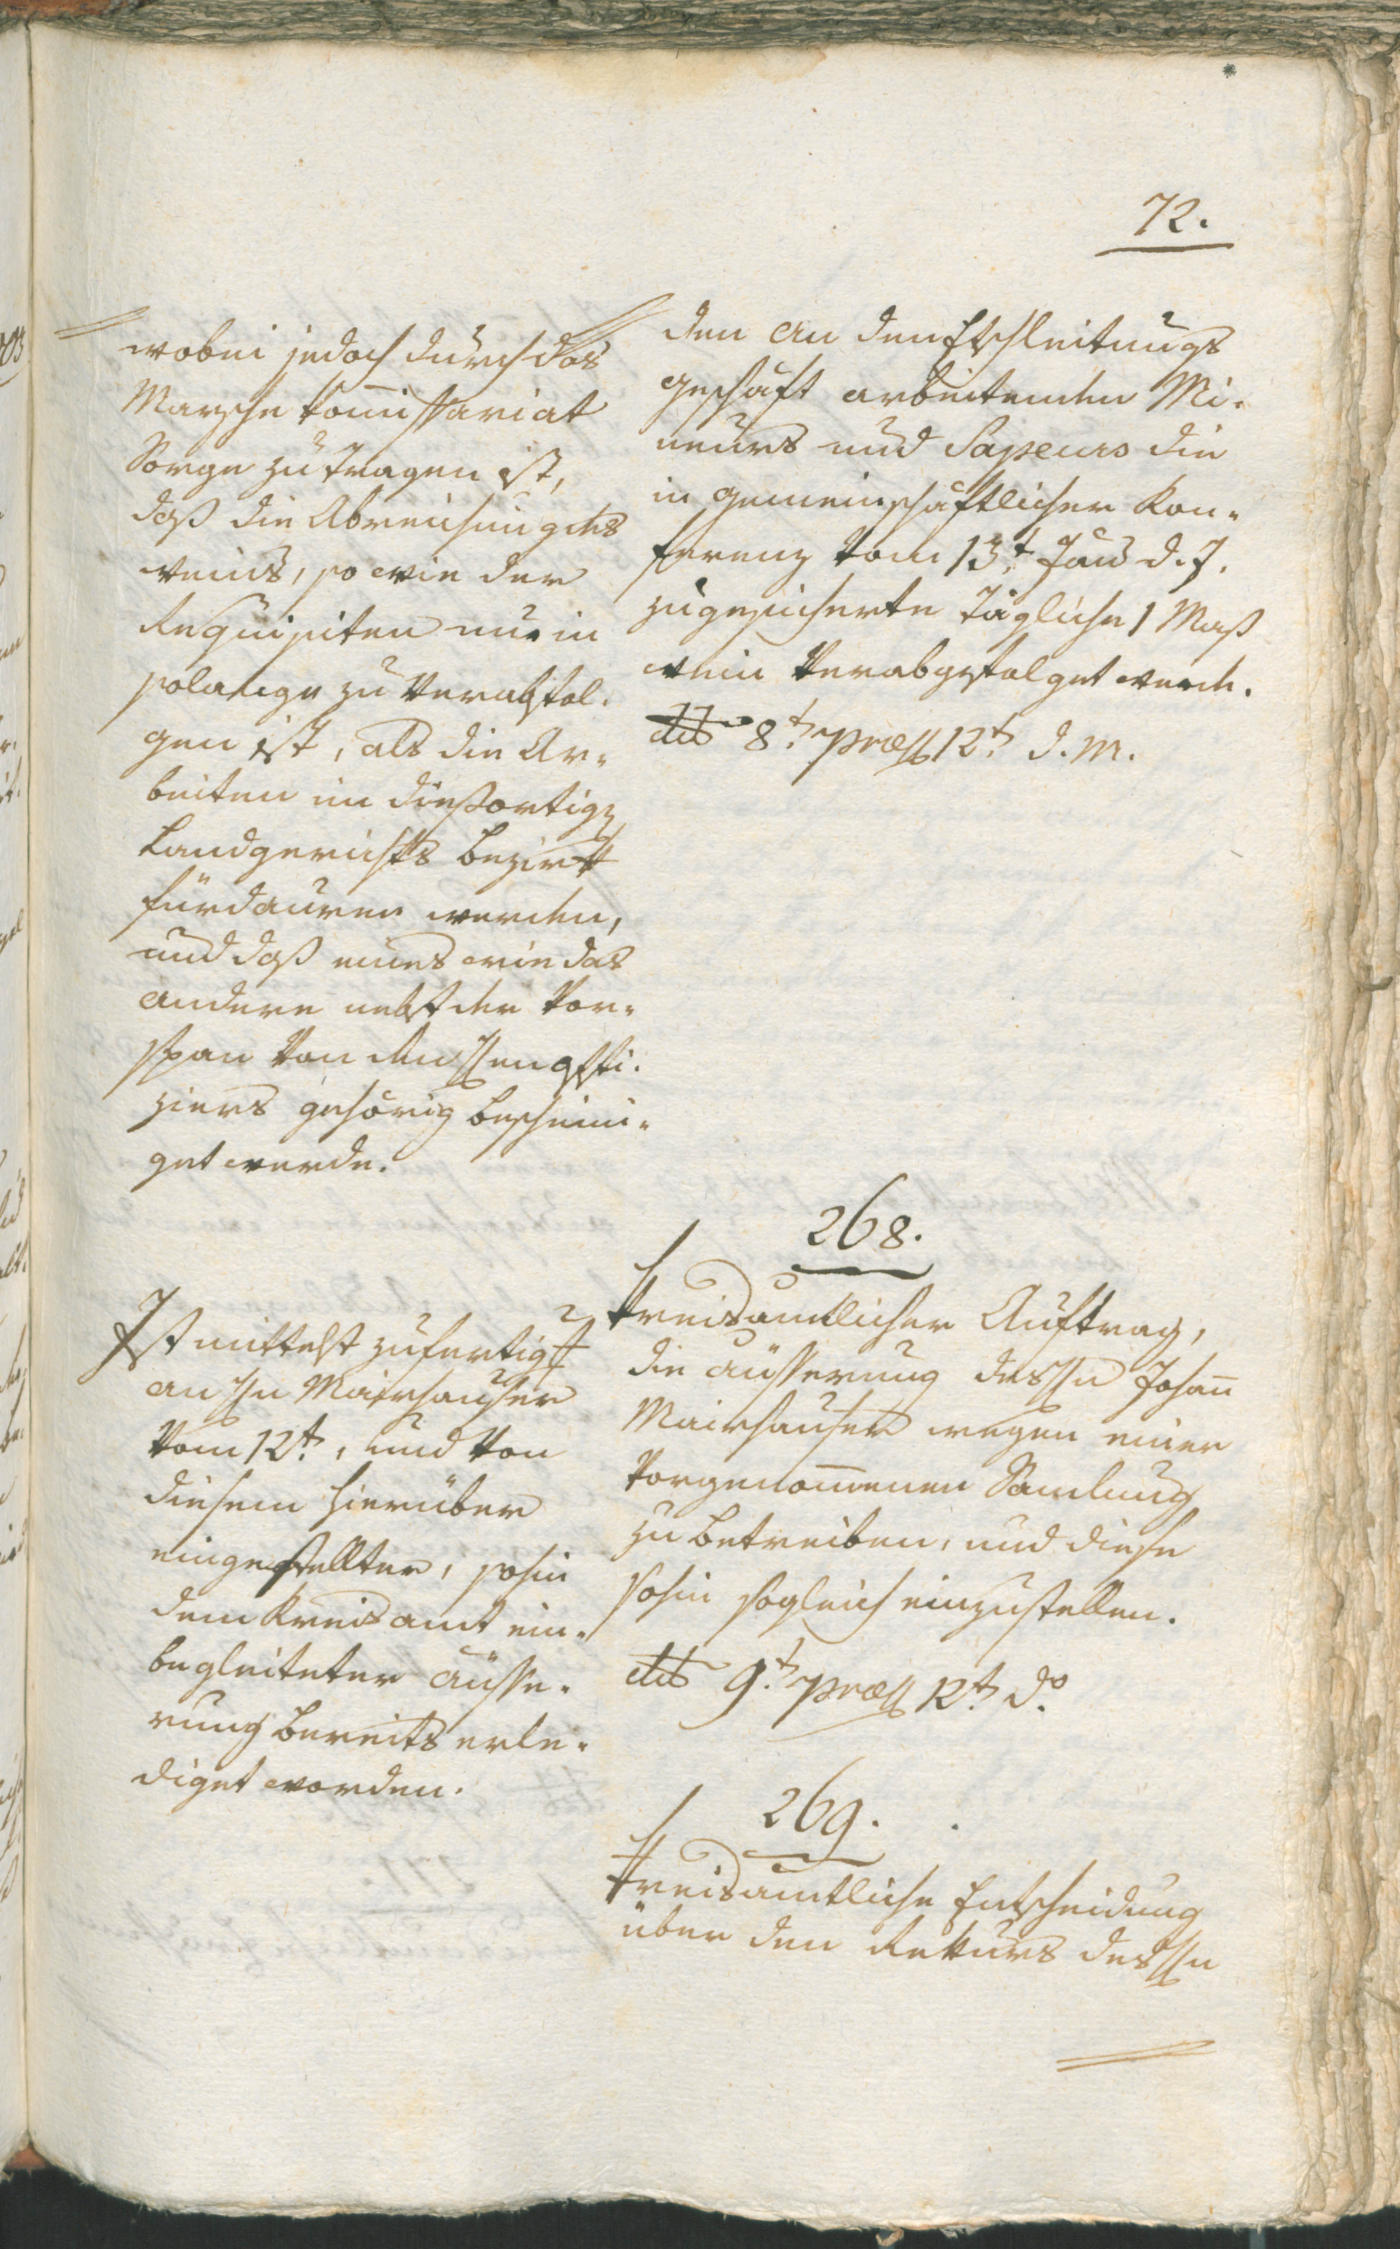 72.
wobei jedoch durch das
Marsche Kom̄issariat
Sorge zu tragen ist,
daß die Abreichung des
weins, so wie der
Requisiten nur in
solange zu verabfol-
gen ist, als die Ar-
beiten im diesortigen
Landgerichts bezirk
fürdauren werden,
und daß eines wie das
andere nebst der Vor-
span von den Hen offi-
ziers gehörig bescheini-
get werde.
Ist mittelst zufertigg
an Hn Mairhauser
vom 12t, und von
diesem hierüber
eingestellter, sohin
dem Kreisamt ein-
begleiteter äusse-
rung bereits erle-
diget worden.
den an den Etschleitungs
geschäft arbeitenden Mi-
neurs und Sapeurs die
in gemeinschäftlicher Kon-
ferenz vom 13t Jäns d. J.
zugesicherte tägliche 1 Maß
wein verabgefolget werde.
dto 8t præs 12t d. M.
268.
Kreisamtlicher Auftrag,
die äusserung des Hn Johan̄
Mairhauser wegen einer
vorgenom̄enen Samlung
zu betreiben, und diese
sohin sogleich einzustellen.
dto 9t præs 12t do
269.
Kreisamtliche Entscheidung
über den Rekurs des Hn